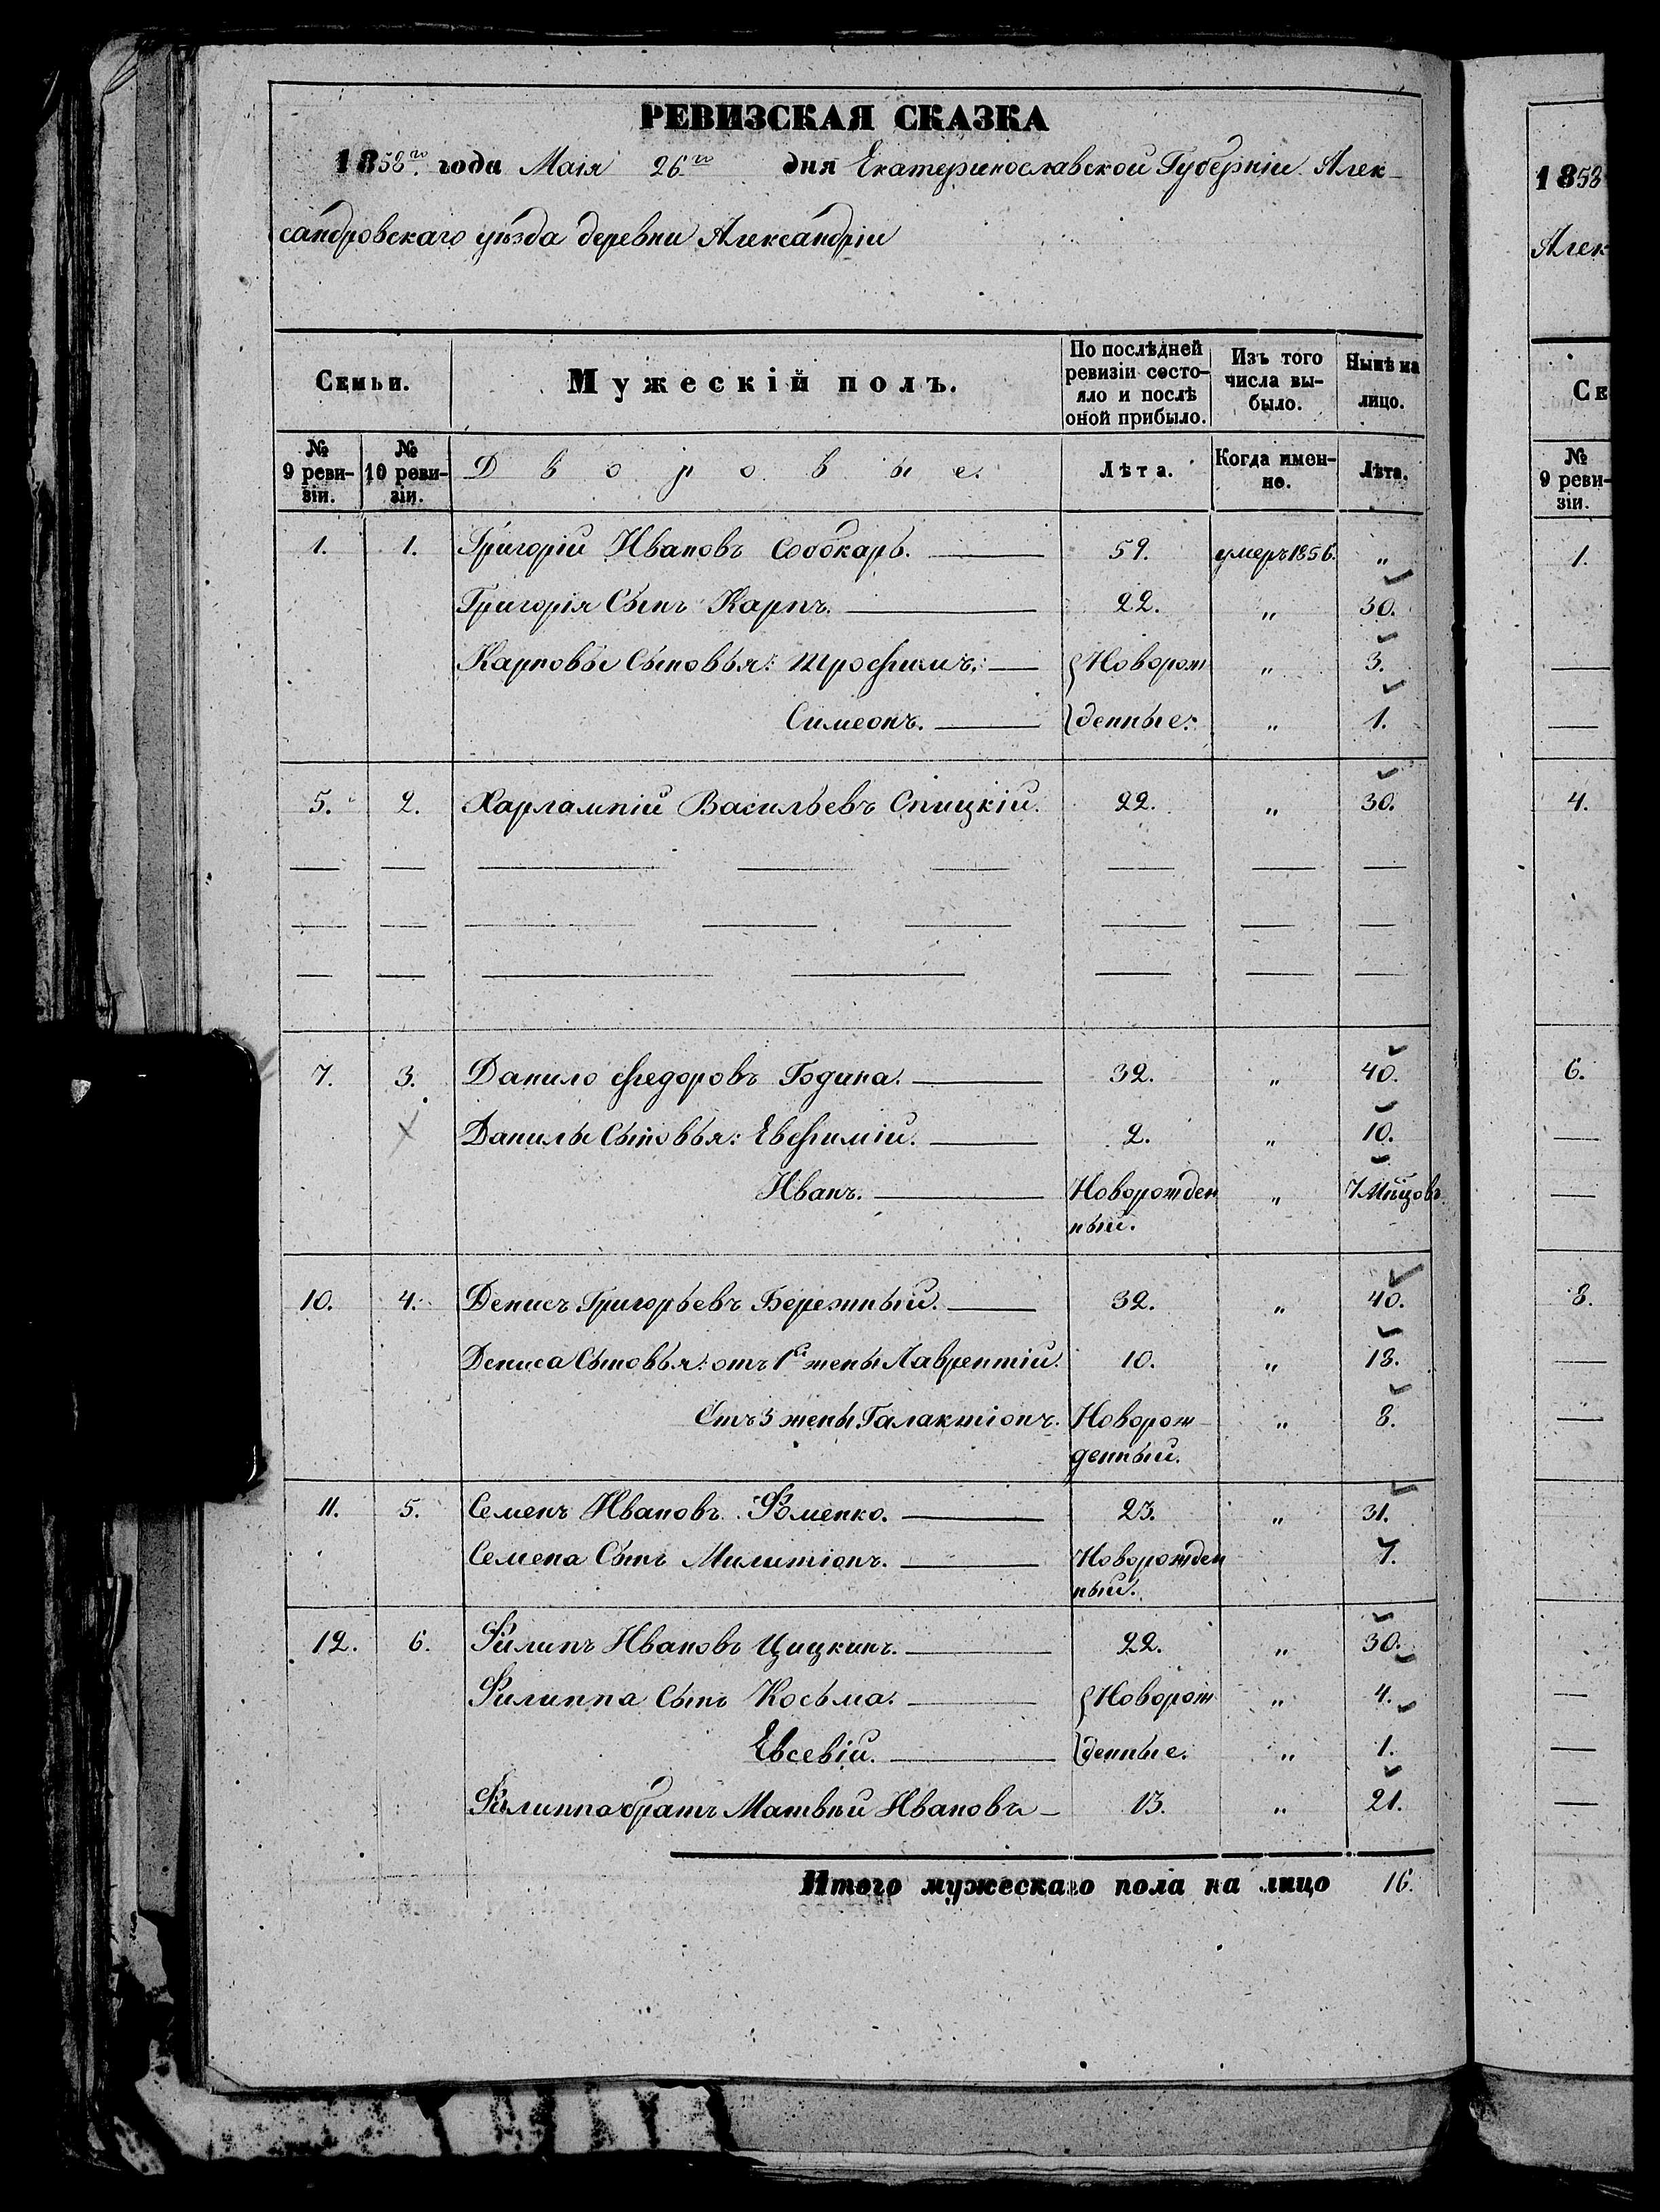 РЕВИЗСКАЯ СКАЗКА
1858го года Маія 26го дня Екатеринославской Губерніи Алек-
сандровскаго уѣзда деревни Александріи
Семьи. Мужескій полъ. По послѣдней ревизіи состо-яло и послѣ оной прибыло. Изъ того числа вы-было. Нынѣ на лицо.
№ 9 реви-зіи. № 10 реви-зіи. Дворовые. Лѣта. Когда имен-но. Лѣта.
1. 1. Григорій Ивановъ Собокарь. 59. умеръ 1856. "
Григорія Сынъ Карпъ. 22. " 30.
Карповы Сыновья: Трофимъ. Новорож " 3.
Симеонъ. денные. " 1.
5. 2. Харлампій Васильевъ Спицкій. 22. " 30.
7. 3. Данило Федоровъ Година. 32. " 40.
Данилы Сыновья: Евфимій. 2. " 10.
Иванъ. Новорожден " 7 Мѣцовъ
ный.
10. 4. Денисъ Григорьевъ Бережный. 32. " 40.
Дениса Сыновья: отъ 1й жены Лаврентій. 10. " 18.
Отъ 3 жены Галактіонъ. Новорож- " 8.
денный.
11. 5. Семенъ Ивановъ Фоменко. 23. " 31.
Семена Сынъ Милитіонъ. Новорожден 7.
ный.
12. 6. Филипъ Ивановъ Цицкинъ. 22. " 30.
Филиппа Сынъ Косьма. Новорож " 4.
Евсевій. денные. " 1.
Филиппа братъ Матвѣй Ивановъ 13. " 21.
Итого мужескаго пола на лицо 16.
1858
Алек
Се
№ 9 реви-зіи.
1.
4.
6.
8.